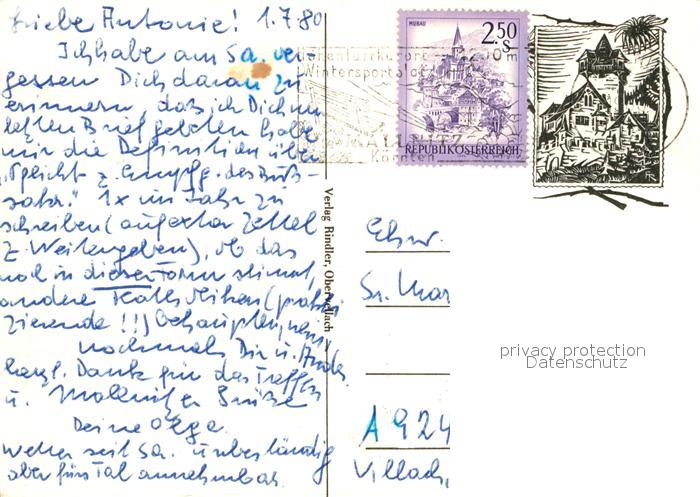 Liebe Antonie! 1.7.80
Ich habe am Sa. ver-
gessen Dich daran zu
erinnern, daß ich Dich im
letzten Brief gebeten habe
mir die Definition über
"Pflicht z. Empfg. des Buß-
sakr." 1x im Jahr zu
schreiben (auf extra Zettel
z. Weitergeben), ob das
noch in dieser Form stimmt,
andere
zierende !!!) behaupten, nein
nochmals Dir u.
herzl. Dank für das Treffen
u. Mallnitzer Grüße
Deine Olga.
Wetter seit Sa. unbeständig
aber fürs Tal annehmbar.
Verlag Rindler, Obervellach
MURAU
2.50
S
REPUBLIK ÖSTERREICH
Höhenluftkurort
Wintersportplatz
MALLNITZ
Kärnten
Ehrw.
Sr. Mar
A 924
Villach,
privacy protection
Datenschutz